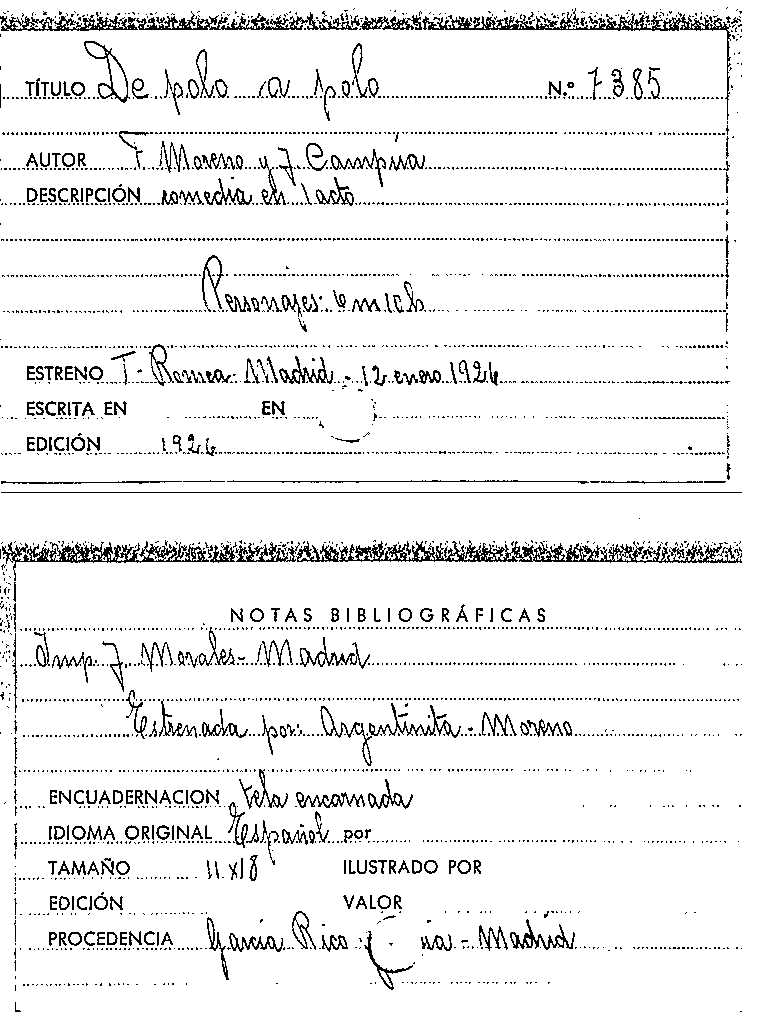 TÍTULO De polo a polo N.º 7385
AUTOR F. Moreno y J. Campúa
DESCRIPCIÓN comedia en 1 acto
Personajes: 6 m 10 h
ESTRENO T. Romea - Madrid - 12 enero 1926
ESCRITA EN EN
EDICIÓN 1926
NOTAS BIBLIOGRÁFICAS
Imp. J. Morales - Madrid
Estrenada por: Argentinita - Moreno
ENCUADERNACION tela encarnada
IDIOMA ORIGINAL Español por
TAMAÑO 11 x 18 ILUSTRADO POR
EDICIÓN VALOR
PROCEDENCIA García Rico y - Madrid